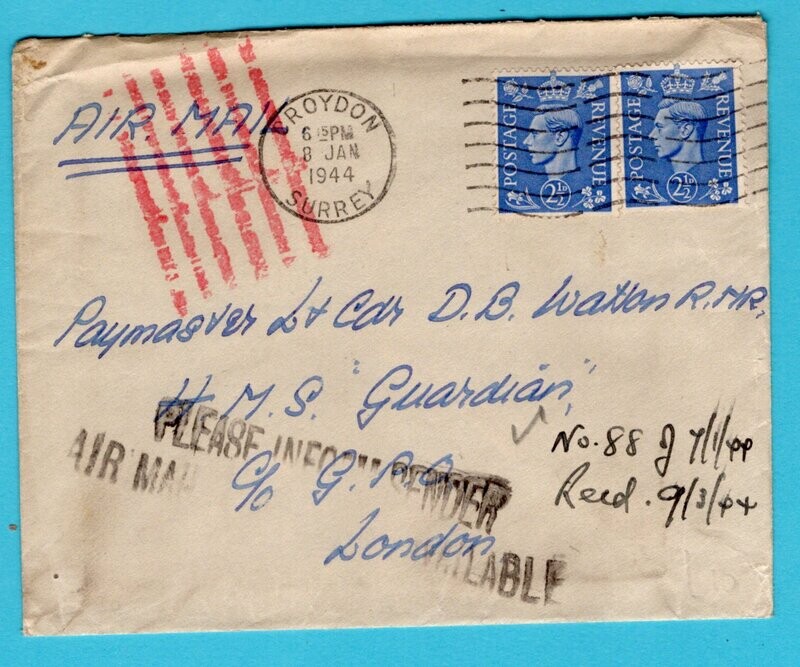 AIR MAIL
CROYDON
6 15 PM
8 JAN
1944
SURREY
POSTAGE REVENUE
2½D
POSTAGE REVENUE
2½D
Paymaster Lt Cdr D.B. Watson R.N.R,
H.M.S. "Guardian",
c/o G.P.O.
London
PLEASE INFORM SENDER
AIR MAIL AVAILABLE
No. 88 J 7/1/44
Recd. 9/3/44